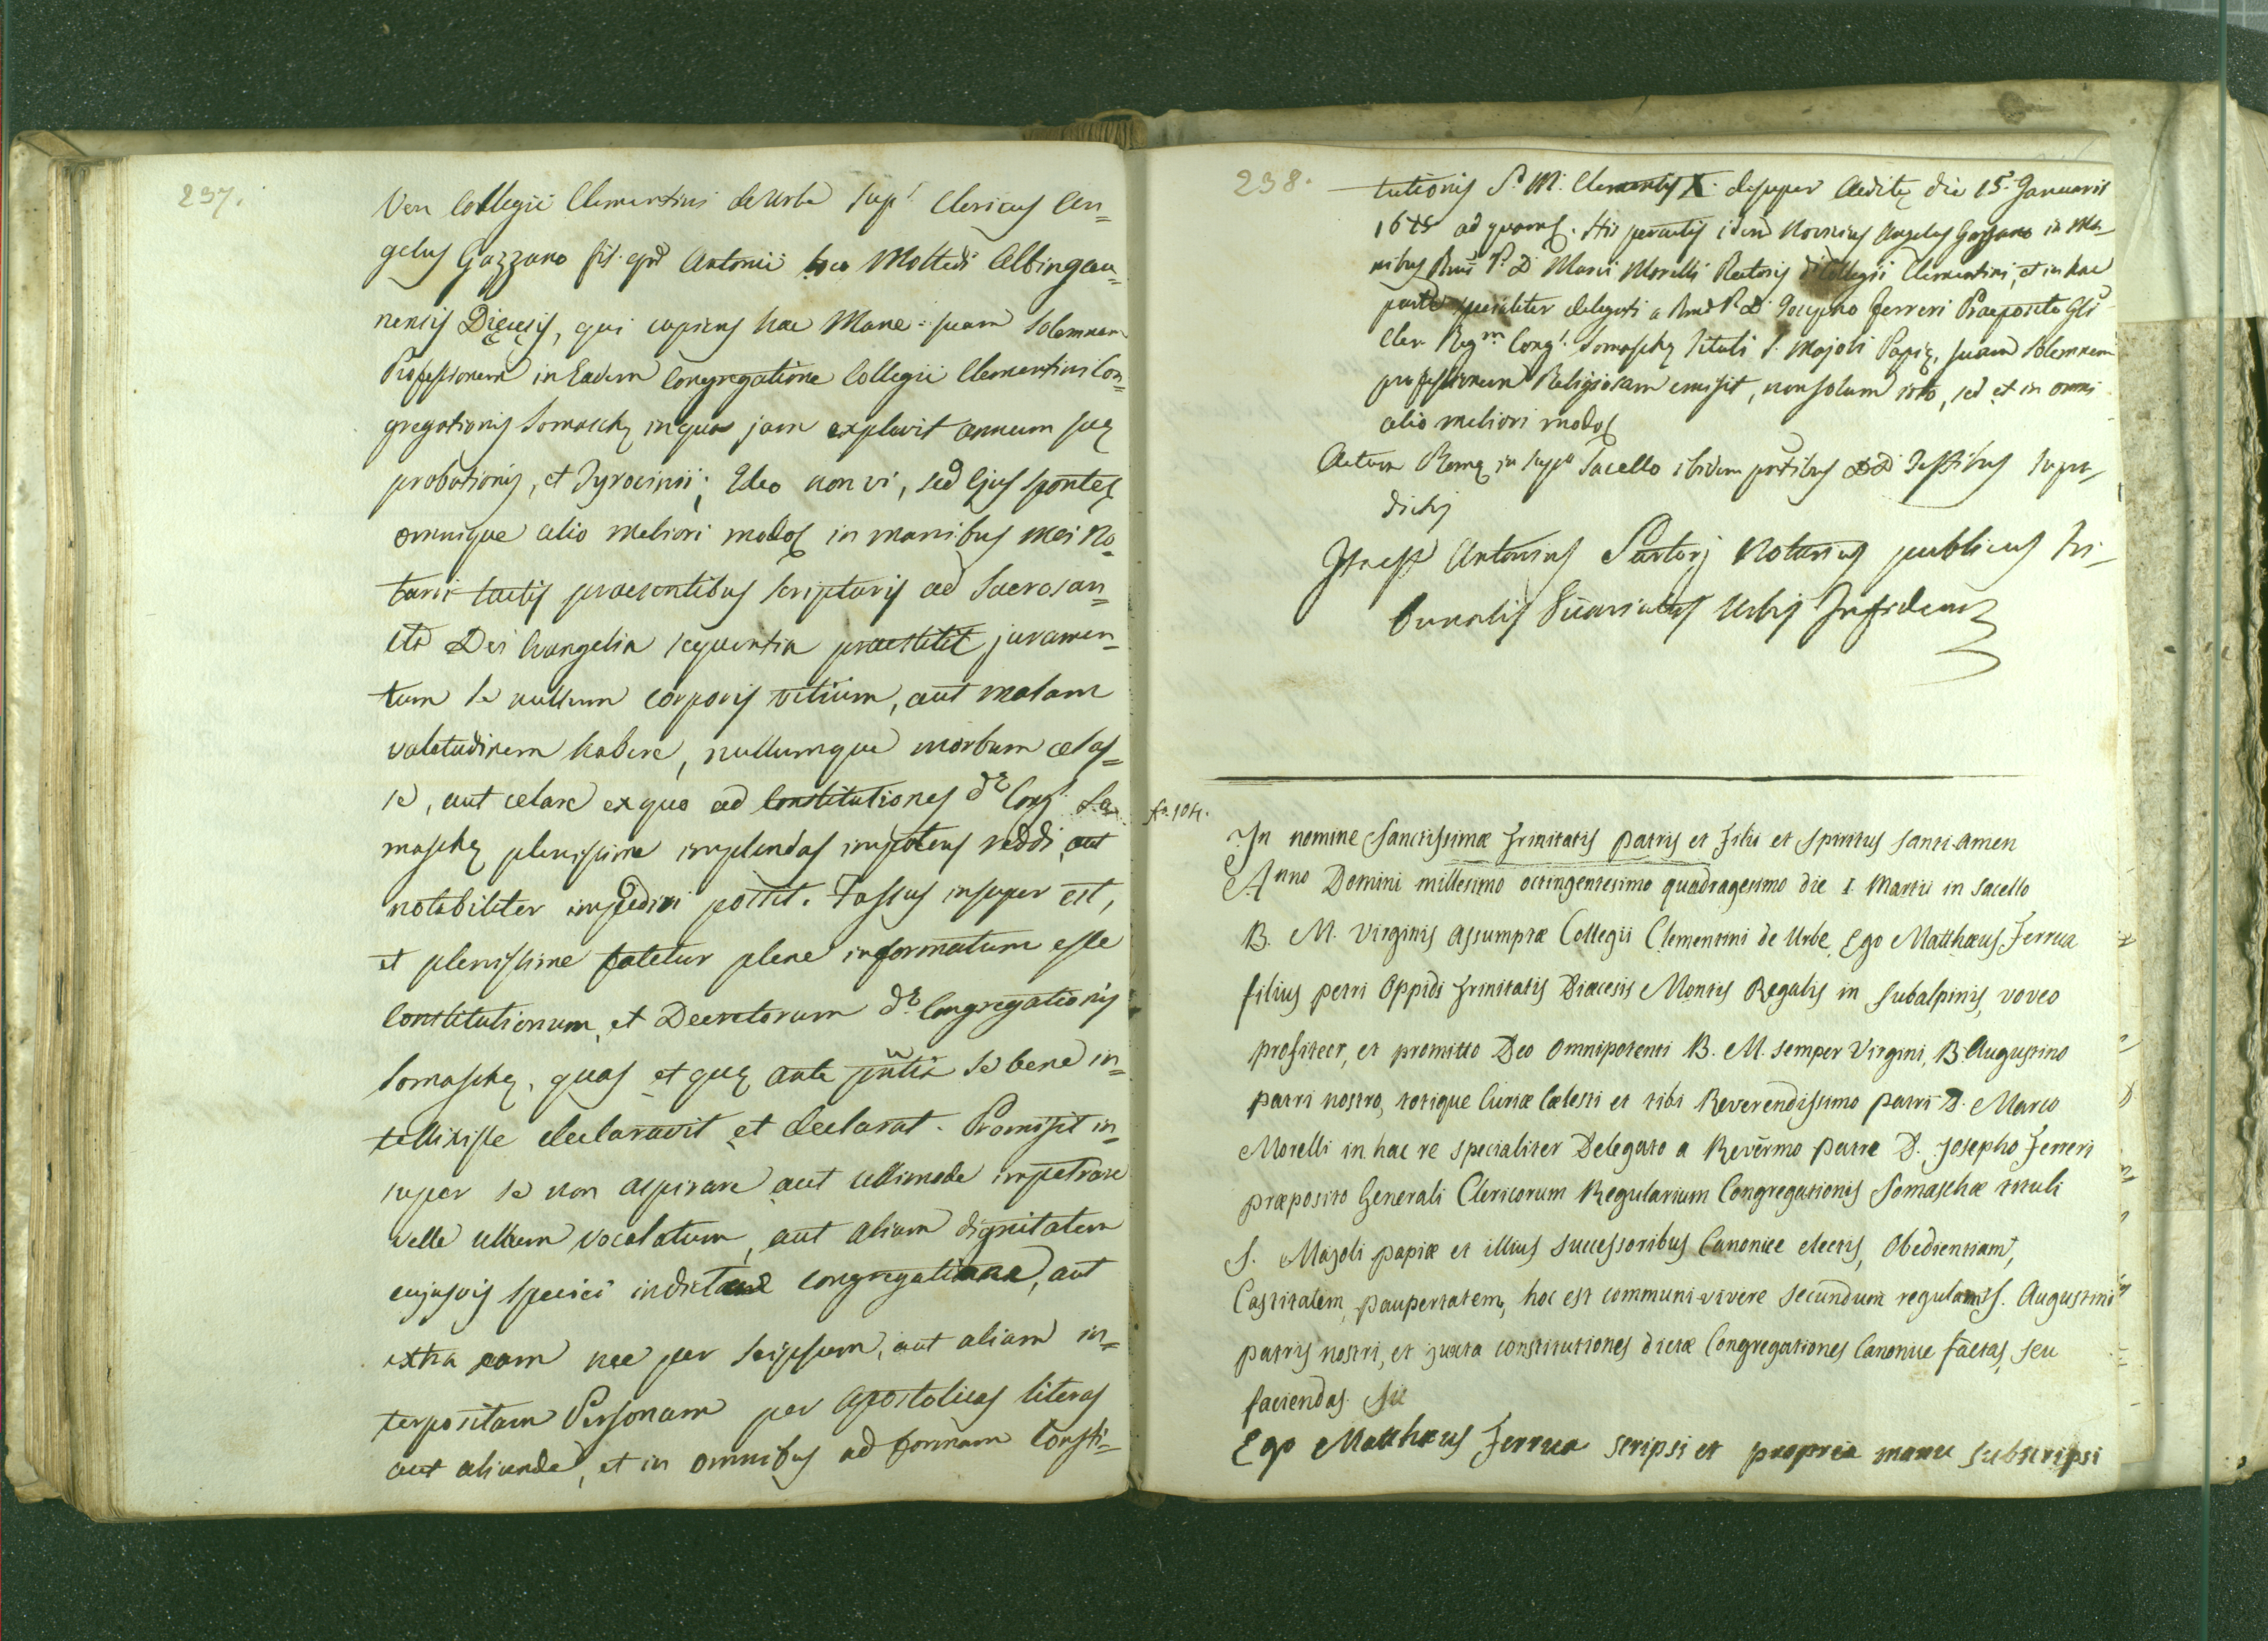 237.
Ven Collegii Clementini de Urbe sup.t Clericus An=
gelus Gazzano fil. qnd Antonii loco Moltedi Albingau=
nensis Dięcesis, qui cupiens hac Mane suam Solemnem
Professionem in Eadem Congregatione Collegii Clementini Con=
gregationis Somaschę in qua jam explevit annum suę
probationis, et Tyrocinii; Ideo non vi, sed Ejus sponte
omnique alio meliori modo in manibus mei No=
tarii tactis praesentibus scripturis ad Sacrosan=
cta Dei Evangelia sequentia praestitit juramen=
tum se nullum corporis vitium, aut malam
valetudinem habere, nullumque morbum celas=
se, aut celare ex quo ad Constitutiones d.ę Cong. So=
maschę plenissime implendas impotens reddi, aut
notabiliter impediri possit. Fassus insuper est,
et plenissime fatetur plene informatum esse
Constitutionum, et Decretorum d.ę Congregationis
Somaschę, quas et quę ante se bene in=
tellixisse declaravit et declarat. Promisit in=
super se non aspirare aut ullimode impetrare
velle ullum vocalatum, aut aliam dignitatem
cujusvis speciei in dicta Congregatione, aut
extra eam nec per seipsum, aut aliam in=
terpositam Personam per Apostolicas literas
aut aliunde, et in omnibus ad formam Consti=
238.
tutionis S. M. Clementis X. desuper Aeditę die 15. Januarii
1675 ad quam. His peractis idem Novicius Angelus Gazzano in Ma=
nibus Rmi P. D. Marci Morelli Rectoris d. Collegii Clementini, et in hac
parte specialiter delegati a Rmo P. D. Josepho Ferreri Praeposito Gli
Cler. Reg.m Cong. Somaschę tituli S. Majoli Papię, suam Solemnem
professionem Religiosam emisit, non solum isto, sed et in omni
alio meliori modo
Actum Romę in supto Sacello ibidem pntibus DD Testibus supra=
dictis
Antonius Sartorj Notarius publicus Tri=
bunalis Vicariatus Urbis
fo. 104.
In nomine Sanctissimæ Trinitatis Patris et Filii et Spiritus Santi amen
Anno Domini millesimo octingentesimo quadragesimo die 1 Martii in Sacello
B. M. Virginis Assumptæ Collegii Clementini de Urbe, Ego Matthæus Ferrua
filius petri Oppidi Trinitatis Diœcesis Montis Regalis in Subalpinis, voveo
profiteor, et promitto Deo Omnipotenti B. M. semper Virgini, B. Augustino
patri nostro, totique Curiæ Cœlesti et tibi Reverendissimo patri D. Marco
Morelli in hac re specialiter Delegato a Revērmo Patre D. Josepho Ferreri
præposito Generali Clericorum Regularium Congregationis Somaschæ tituli
S. Majoli papiæ et illius successoribus Canonice electis, Obedientiam,
Castitatem, paupertatem, hoc est communi vivere secundum regulam S. Augustini
patris nostri, et juxta constitutiones dictæ Congregationes Canonice factas, seu
faciendas. Sic
Ego Matthæus Ferrua scripsi et propria manu subscripsi